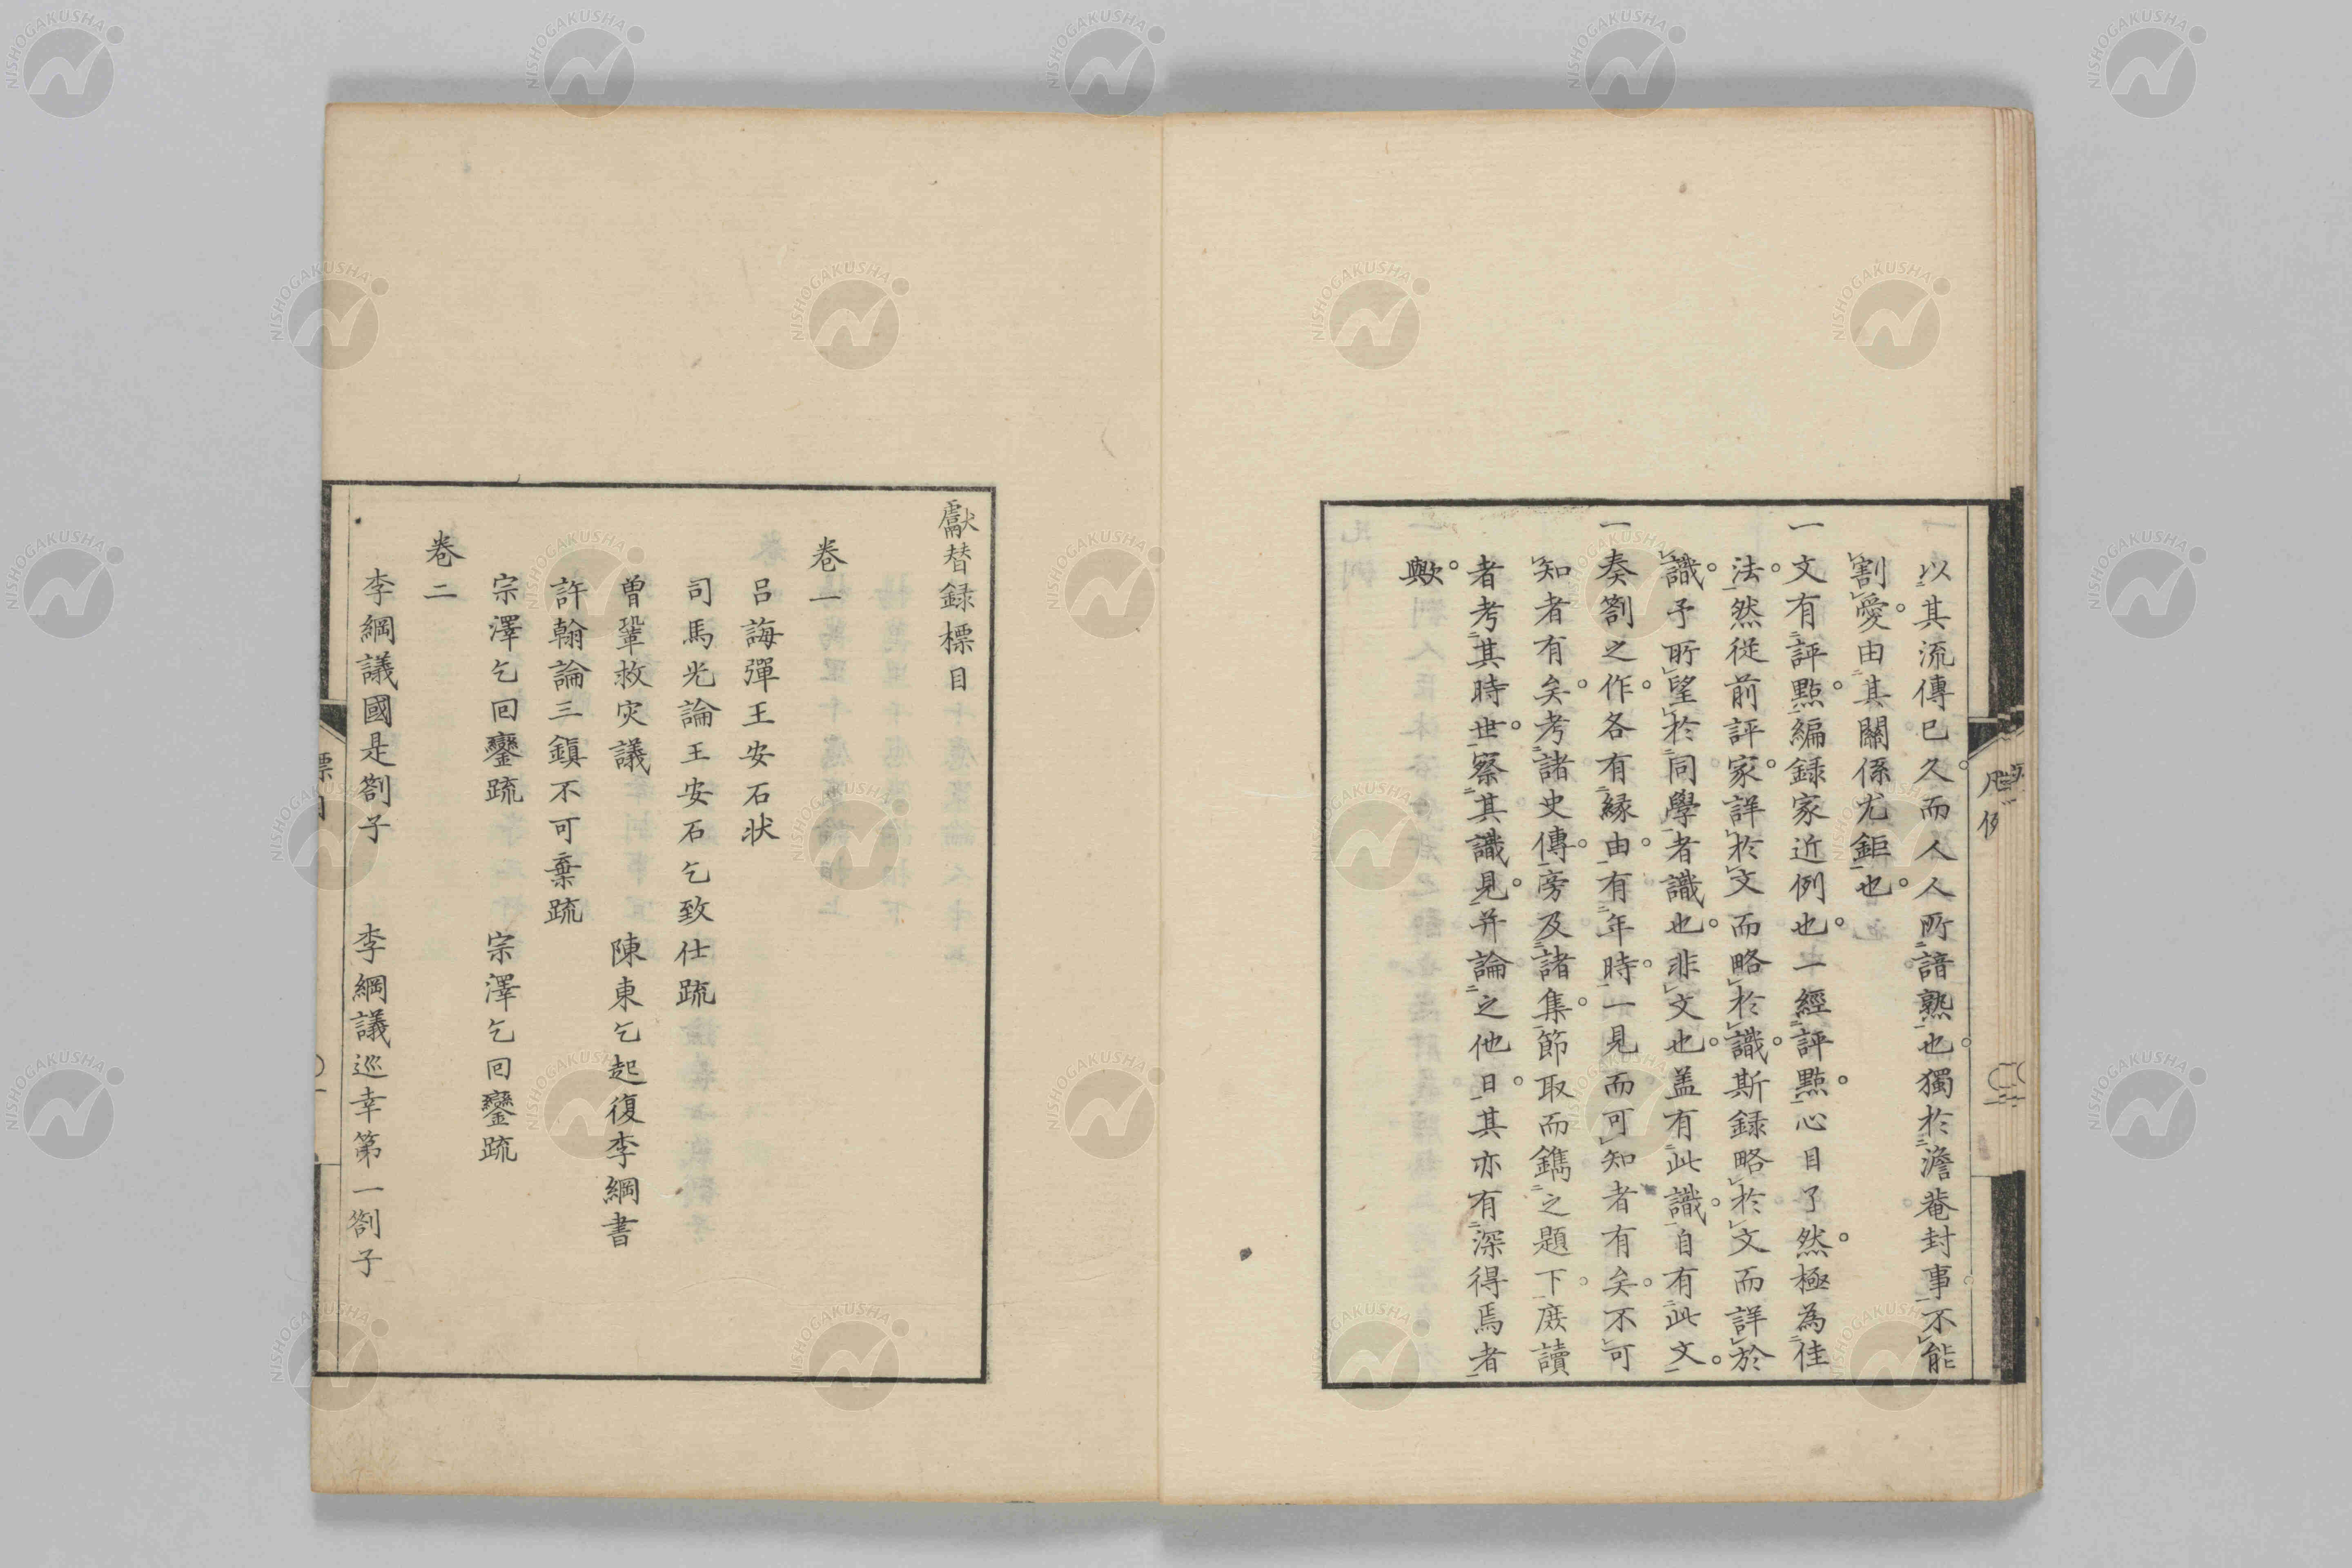 以其流傳已久而人人所諳熟也獨於澹菴封事不能
割愛由其關係尤鉅也
一文有評點編録家近例也一經評點心目了然極為佳
法然從前評家詳於文而略於識斯録略於文而詳於
識予所望於同學者識也非文也盖有此識自有此文
一奏劄之作各有縁由有年時一見而可知者有矣不可
知者有矣考諸史傳旁及諸集節取而鐫之題下庻讀
者考其時世察其識見并論之他日其亦有深得焉者
歟
凡例
獻替録標目
卷一
呂誨彈王安石状
司馬光論王安石乞致仕疏
曽鞏救灾議 陳東乞起復李綱書
許翰論三鎮不可棄疏
宗澤乞回鑾疏 宗澤乞回鑾疏
卷二
李綱議國是劄子 李綱議巡幸第一劄子
標目
NISHOGAKUSHA